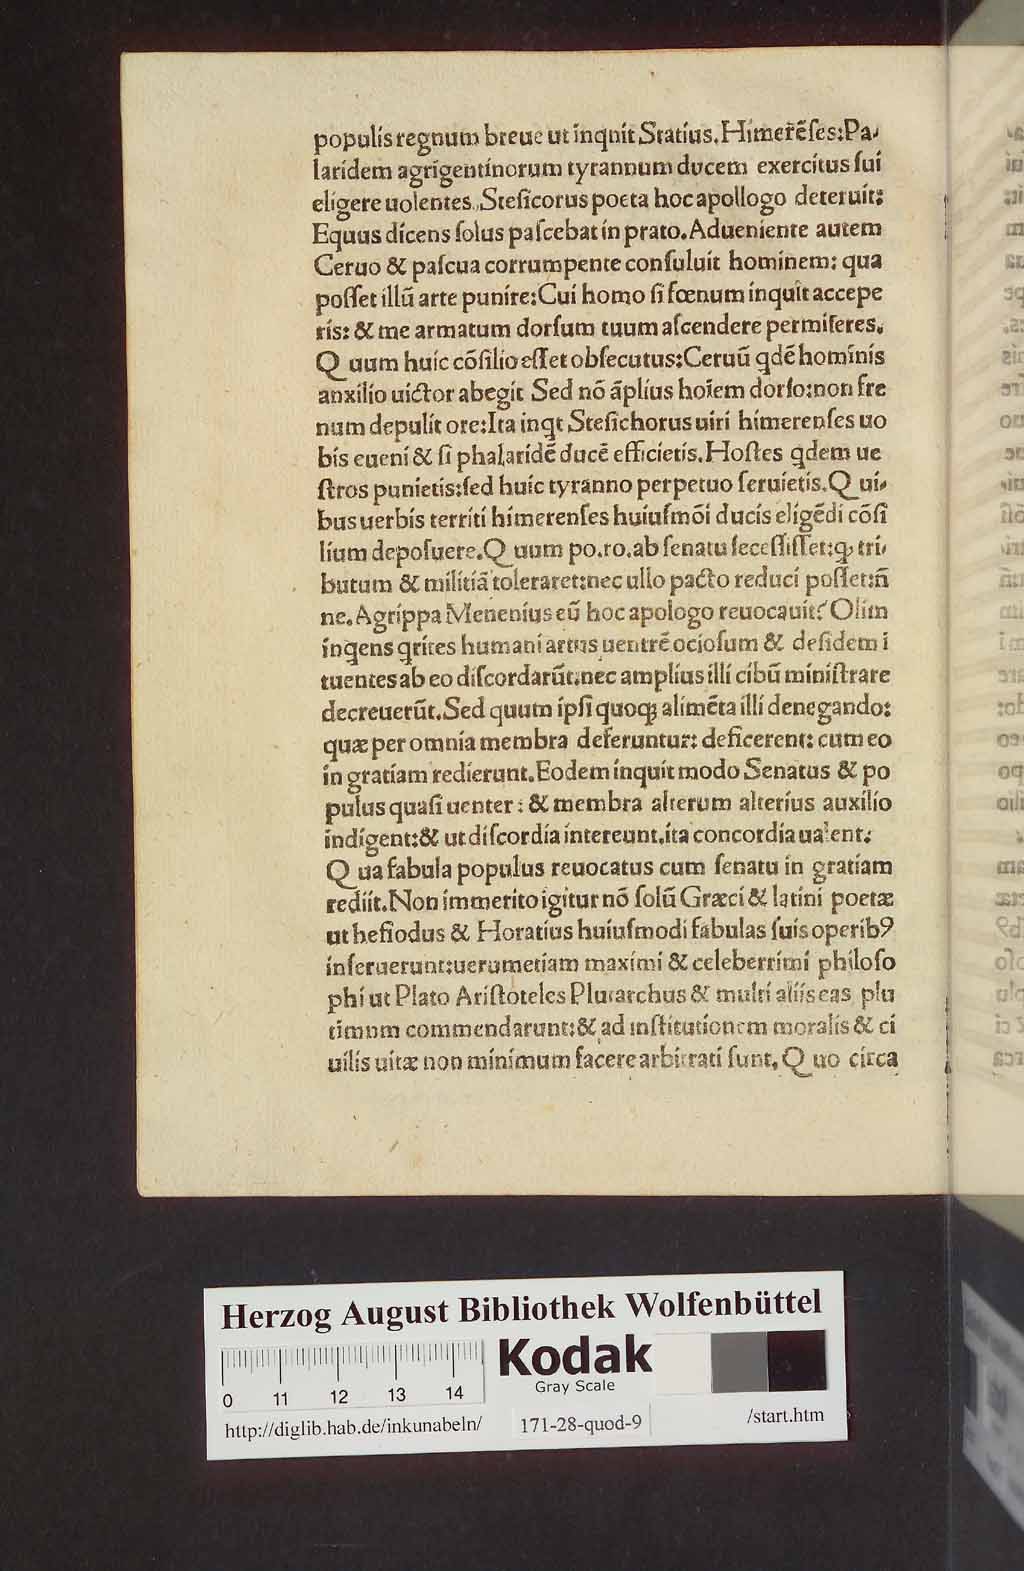 populis regnum breue ut inqnit Statius. Himerēſes: Pa⸗
laridem agrigentinorum tyrannum ducem exercitus ſui
eligere uolentes. Steſicorus poeta hoc apollogo deteruit:
Equus dicens ſolus paſcebat in prato. Adueniente autem
Ceruo & paſcua corrumpente conſuluit hominem: qua
poſſet illū arte punire: Cui homo ſi fœnum inquit accepe
ris: & me armatum dorſum tuum aſcendere permiſeres.
Q uum huic cōſilio eſſet obſecutus: Ceruū qdē hominis
anxilio uictor abegit Sed nō āplius hoīem dorſo: non fre
num depulit ore: Ita inqt Steſichorus uiri himerenſes uo
bis eueni & ſi phalaridē ducē efficietis. Hoſtes qdem ue
ſtros punietis: ſed huic tyranno perpetuo ſeruietis. Q ui⸗
bus uerbis territi himerenſes huiuſmōi ducis eligēdi cōſi
lium depoſuere. Q uum po. ro. ab ſenatu ſeceſſiſſet: ꝙ tri⸗
butum & militiā toleraret: nec ullo pacto reduci poſſet: n̄
ne. Agrippa Menenius eū hoc apologo reuocauit? Olim
inqens qrites humani artus uentrē ocioſum & deſidem i
tuentes ab eo diſcordarūt: nec amplius illi cibū miniſtrare
decreuerūt. Sed quum ipſi quoqꝫ alimēta illi denegando:
quæ per omnia membra deferuntur: deficerent: cum eo
in gratiam redierunt. Eodem inquit modo Senatus & po
pulus quaſi uenter: & membra alterum alterius auxilio
indigent: & ut diſcordia intereunt, ita concordia ualent:
Q ua fabula populus reuocatus cum ſenatu in gratiam
rediit. Non immerito igitur nō ſolū Græci & latini poetæ
ut heſiodus & Horatius huiuſmodi fabulas ſuis operibꝰ
inſeruerunt: uerumetiam maximi & celeberrimi philoſo
phi ut Plato Ariſtoteles Plutarchus & multi alii: eas plu
rimum commendarunt: & ad inſtitutionem moralis & ci
uilis uitæ non minimum facere arbitrati ſunt. Q uo circa
Herzog August Bibliothek Wolfenbüttel
Kodak
Gray Scale
0 11 12 13 14
http://diglib.hab.de/inkunabeln/ 171-28-quod-9 /start.htm